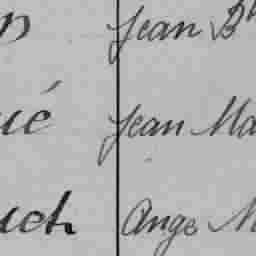 n Jean Bte
ué Jean Ma
uch Ange M